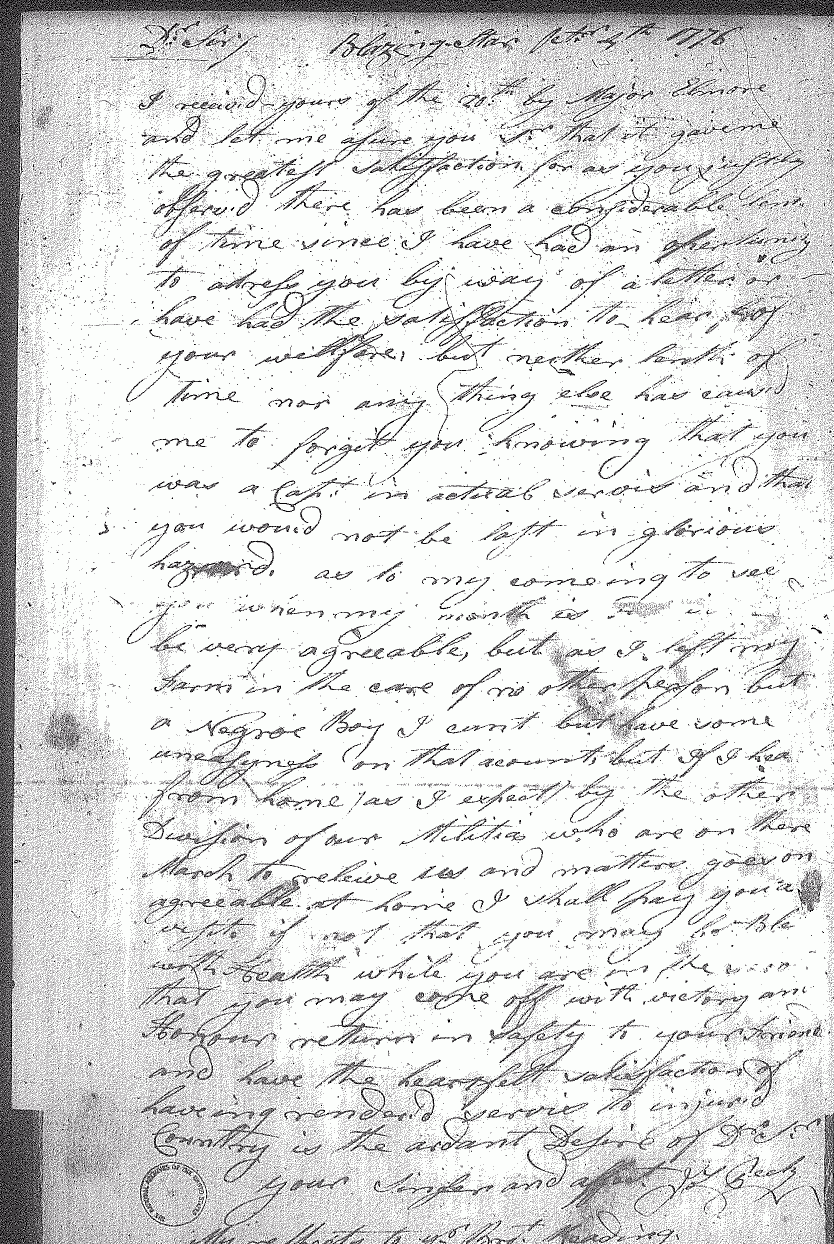 Dr. Sir/ Blazing Star Octr. 4th 1776
I receivd yours of the 20th by Major Elmore
and let me asure you Sr. that it gave me
the greatest satisfaction for as you justly
observ'd there has been a considerable
of time since I have had an opertunity
to adress you by way of a letter or
have had the satisfaction to hear of
your wellfare, but neither lenth of
time nor any thing else has causd
me to forgit you knowing that you
was a Capt. in actual servis and that
you would not be last in glorious
hazzard. as to my comeing to see
you when my month is
be very agreeable, but as I left my
Farm in the care of no other person but
a Negroe Boy I cant but have some
uneasyness on that acount, but If I hea
from home (as I expect) by the other
Division of our Militia who are on there
March to releive us and matters goes on
agreeable at home I shall pay you a
visite if not that you may be Ble
with Health while you are in the
that you may come off with victory an
Honour return in safety to your Friend
and have the heartfelt satisfaction of
haveing renderd servis to injurd
Country is the ardant Desire of Dr. Sir
your Sinsear and affect. Js. Peck
My respects to yr. Brot. Reading.
THE NATIONAL ARCHIVES OF THE UNITED STATES